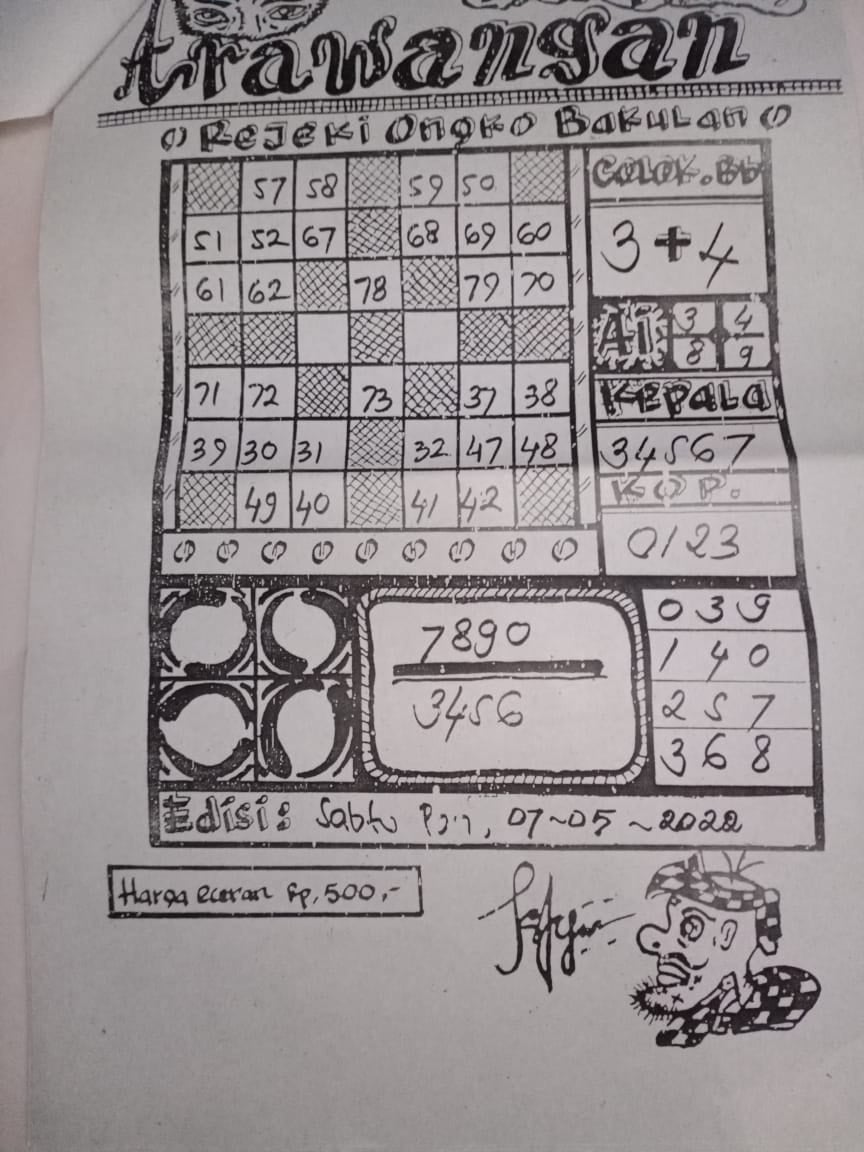 Arawangan
Rejeki Ongko Bakulan
57 58 59 50
51 52 67 68 69 60
61 62 78 79 70
71 72 73 37 38
39 30 31 32 47 48
49 40 41 42
COLOK. BB
3 + 4
AI 3 4
8 9
KEPALA
34567
KOP.
0123
7890
3456
039
140
257
368
Edisi: Sabtu 07~05~2022
Harga eceran Rp. 500,-